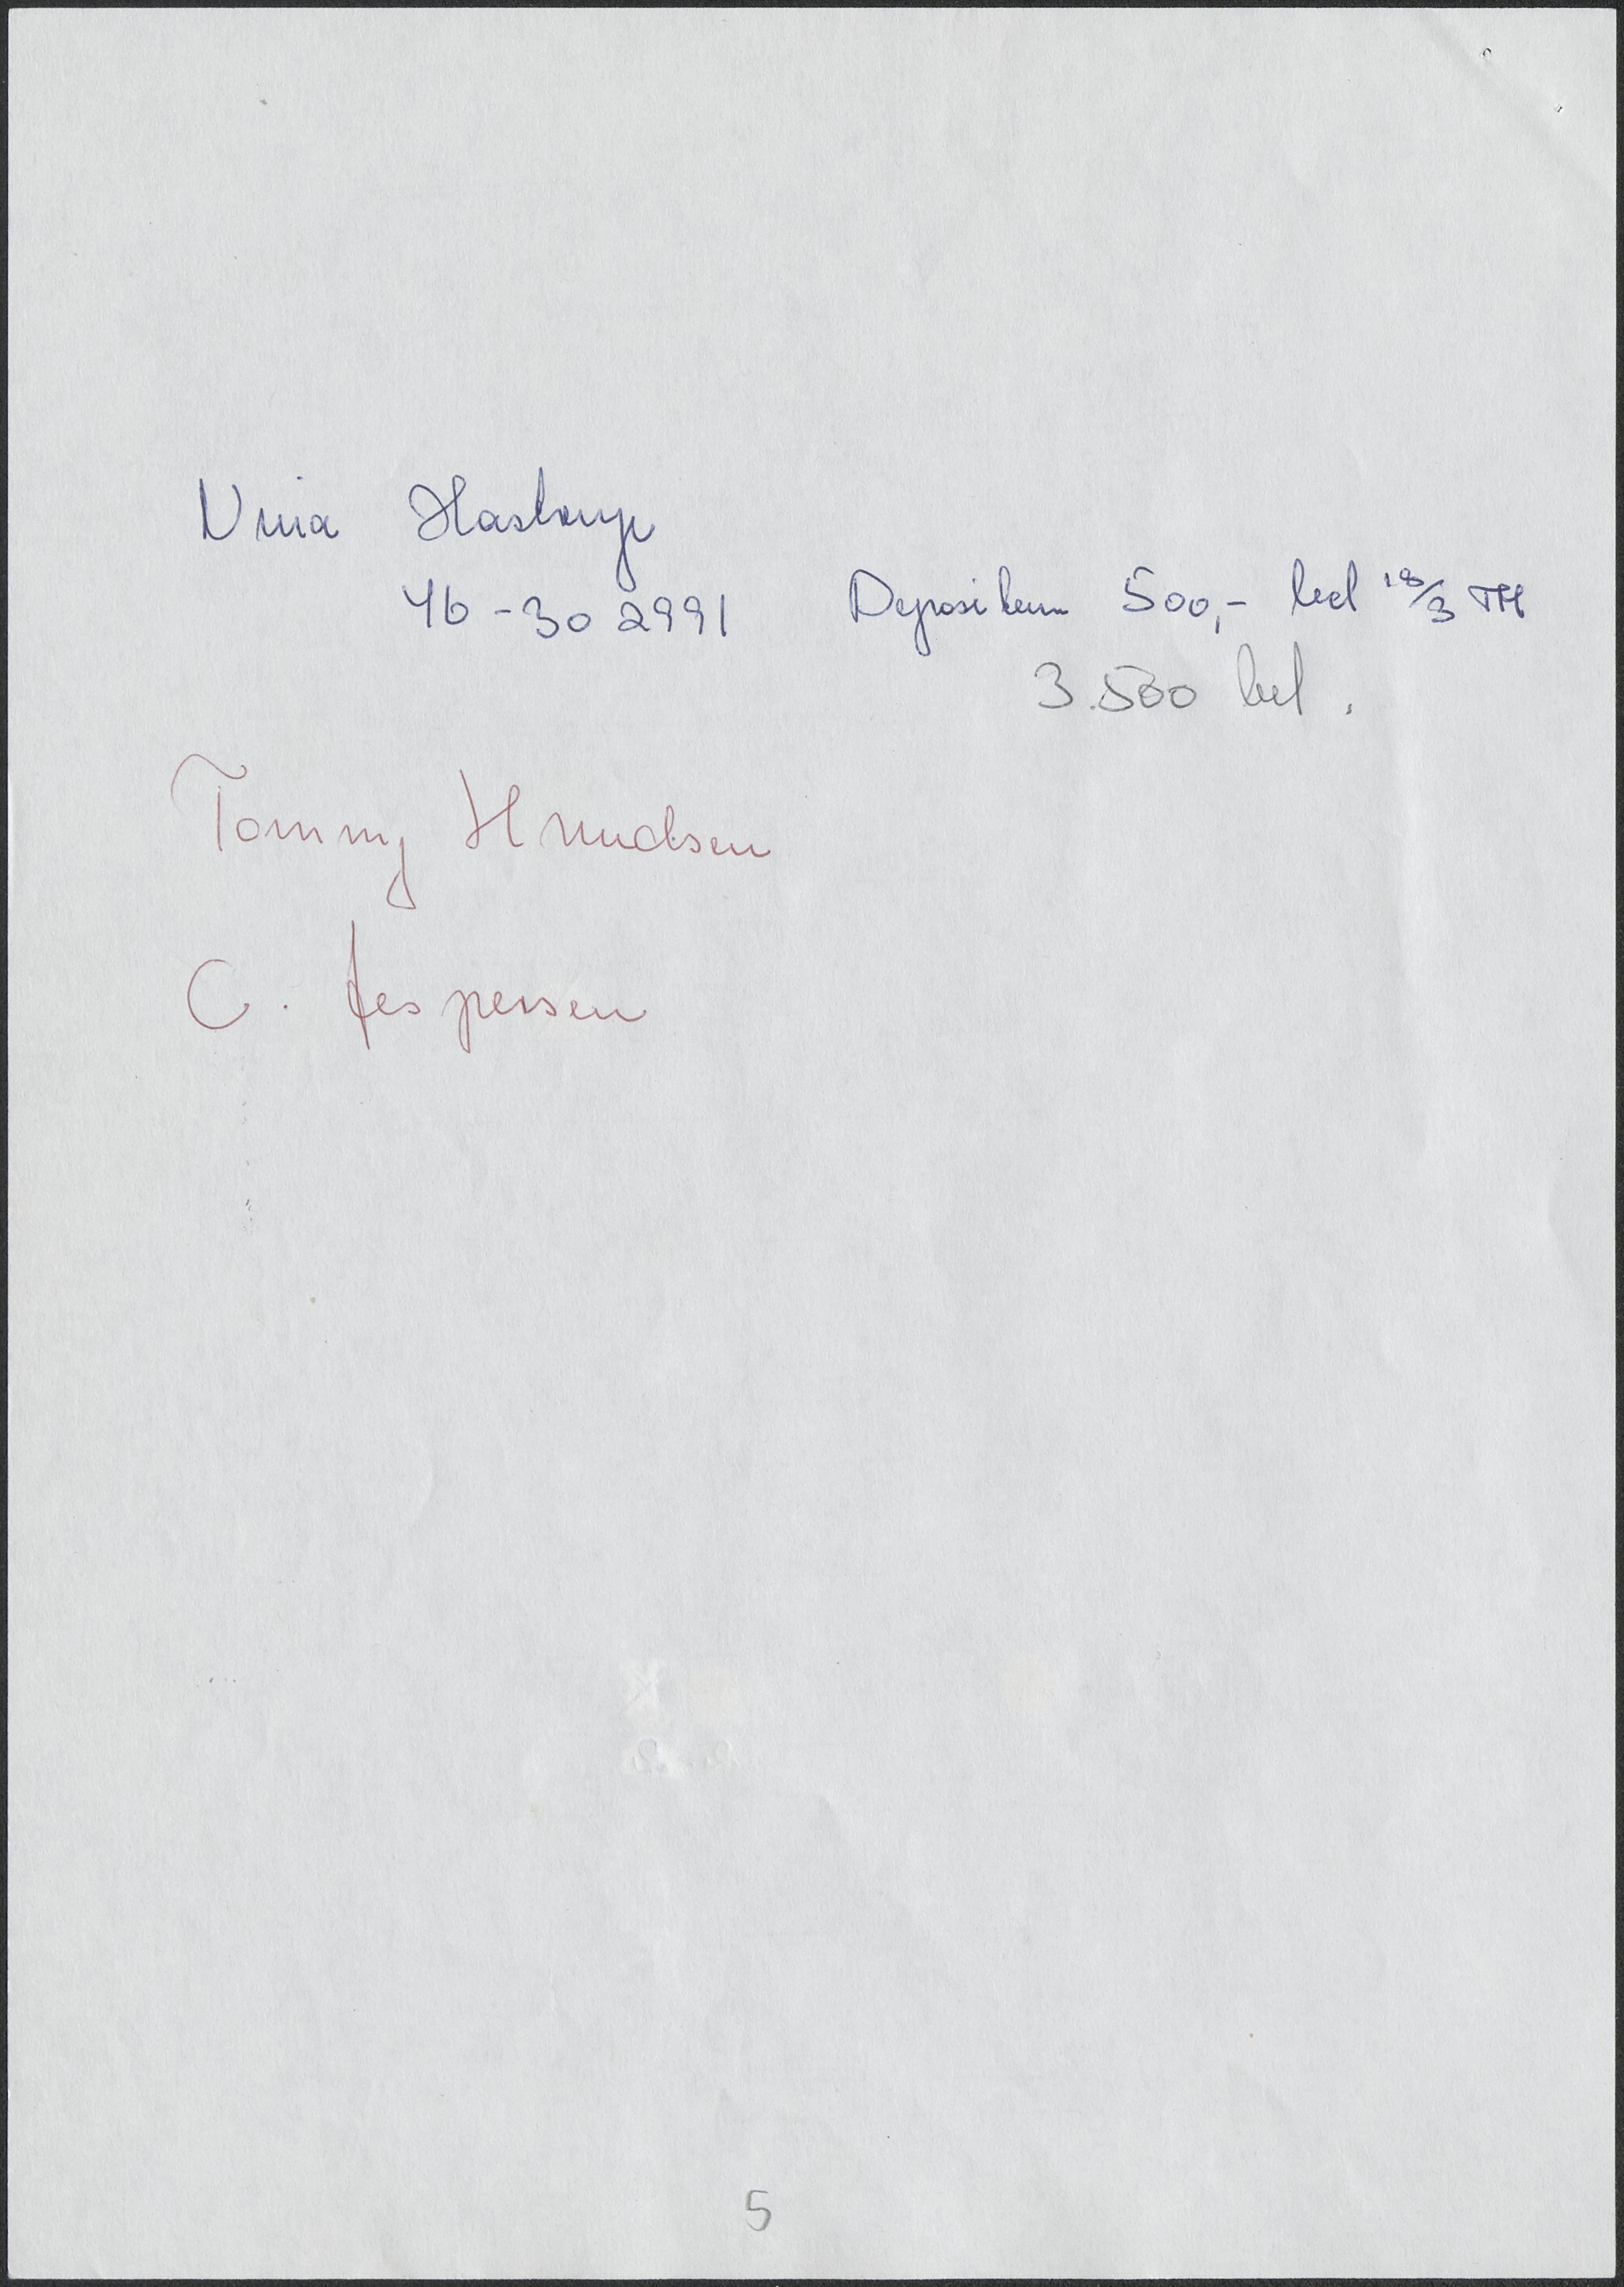 Nina Hastrup
46-30 2991 Depositum 500,- bet 18/3 TH
3.500 bet.
Tommy Knudsen
C. Jespersen
5